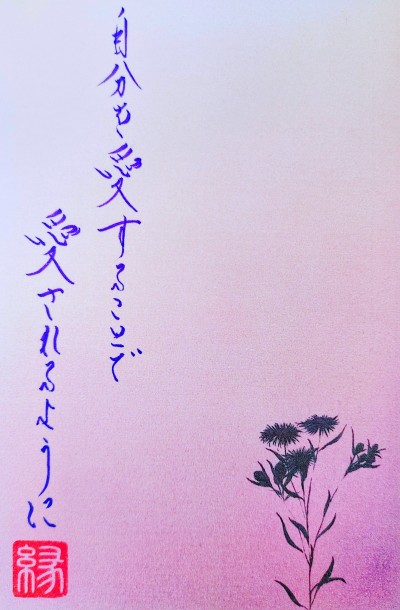 自分を愛することで
愛されるように
縁